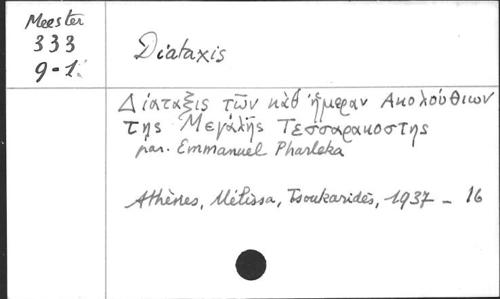 Meester
333
9-1
Diataxis
Διάταξις τῶν κὰθ ἡμεραν Ακολούθιων
τῆς Μεγάλῆς Τεσσαρακοστης
par. Emmanuel Pharleka
Athènes, Mélissa, Tsoukaridès, 1937 - 16